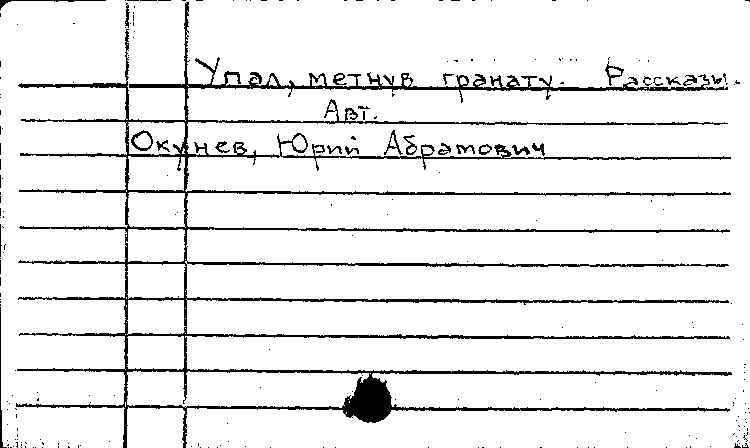 Упал, метнув гранату. Рассказы.
Авт.
Окунев, Юрий Абрамович